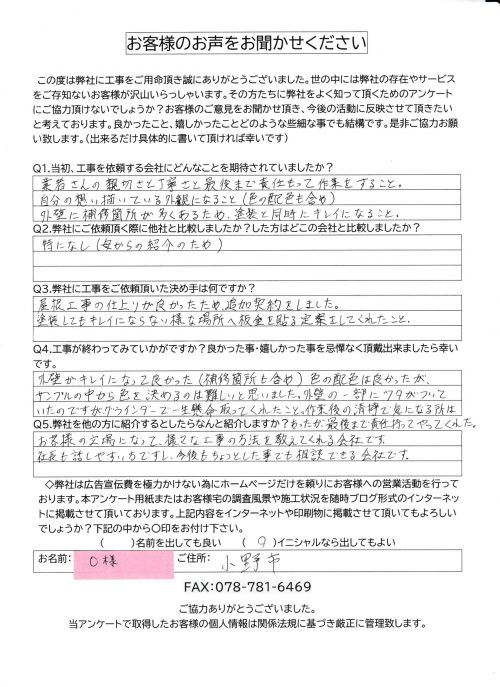 お客様のお声をお聞かせください
この度は弊社に工事をご用命頂き誠にありがとうございました。世の中には弊社の存在やサービス
をご存知ないお客様が沢山いらっしゃいます。その方たちに弊社をよく知って頂くためのアンケート
にご協力頂けないでしょうか？お客様のご意見をお聞かせ頂き、今後の活動に反映させて頂きたい
と考えております。良かったこと、嬉しかったことどのような些細な事でも結構です。是非ご協力お願
い致します。（出来るだけ具体的に書いて頂ければ幸いです）
Q1.当初、工事を依頼する会社にどんなことを期待されていましたか？
業者さんの親切さと丁寧さと最後まで責任もって作業をすること。
自分の想い描いている外観になること（色の配色も含め）
外壁に補修箇所が多くあるため、塗装と同時にキレイになること。
Q2.弊社にご依頼頂く際に他社と比較しましたか？した方はどこの会社と比較しましたか？
特になし（母からの紹介のため）
Q3.弊社に工事をご依頼頂いた決め手は何ですか？
屋根工事の仕上りが良かったため、追加契約をしました。
塗装してもキレイにならない様な場所へ板金を貼る定案をしてくれたこと。
Q4.工事が終わってみていかがですか？良かった事・嬉しかった事を忌憚なく頂戴出来ましたら幸い
です。
外壁がキレイになって良かった（補修箇所も含め）色の配色は良かったが、
サンプルの中から色を決めるのは難しいと思いました。外壁の一部にツタがついて
いたのですがグラインダーで一生懸命取ってくれたこと。作業後の清掃で気になる所は
Q5.弊社を他の方に紹介するとしたらなんと紹介しますか？もあったが、最後まで責任持ってやってくれた。
お客様の立場になって、様々な工事の方法を教えてくれる会社です。
社長も話しやすい方ですし、今後もちょっとした事でも相談できる会社です。
◇弊社は広告宣伝費を極力かけない為にホームページだけを頼りにお客様への営業活動を行って
おります。本アンケート用紙またはお客様宅の調査風景や施工状況を随時ブログ形式のインターネッ
トに掲載させて頂いております。上記内容をインターネットや印刷物に掲載させて頂いてもよろしい
でしょうか？下記の中から〇印をお付け下さい。
（　　）名前を出しても良い　（　〇　）イニシャルなら出してもよい
お名前：　O様　ご住所：　小野市
FAX：078-781-6469
ご協力ありがとうございました。
当アンケートで取得したお客様の個人情報は関係法規に基づき厳正に管理致します。